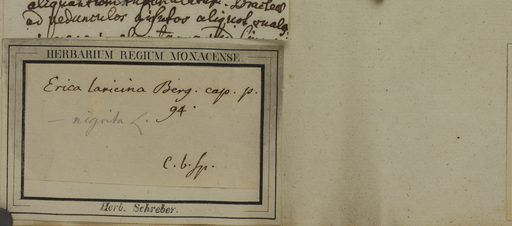 ad pedunculos
HERBARIUM REGIUM MONACENSE.
Erica laricina Berg. cap. p.
94.
— nigrita L.
C. b. sp.
Herb. Schreber.